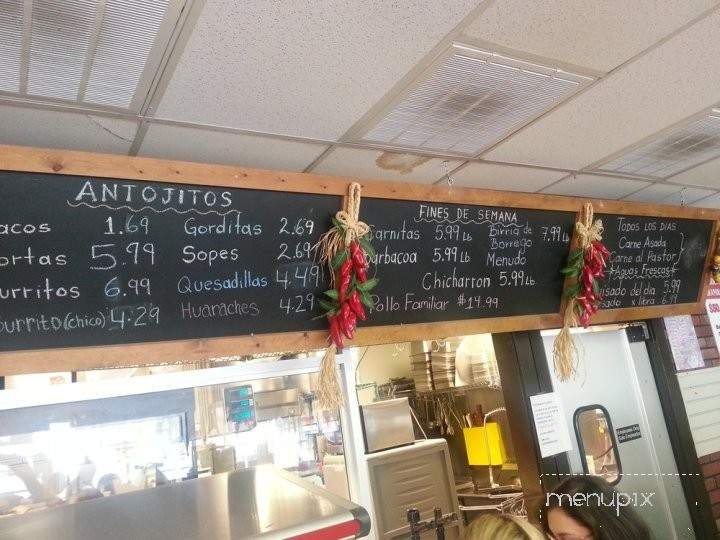 ANTOJITOS
acos 1.69
ortas 5.99
urritos 6.99
burrito (chico) 4.29
Gorditas 2.69
Sopes 2.69
Quesadillas 4.49
Huaraches 4.29
FINES DE SEMANA
Carnitas 5.99 Lb
Barbacoa 5.99 Lb
Birria de 7.99 Lb
Borrego
Menudo
Chicharron 5.99 Lb
Pollo Familiar $14.99
TODOS LOS DIAS
Carne Asada
Carne al Pastor
*Aguas Frescas*
uisado del día 5.99
isado x libra 6.99
menupix